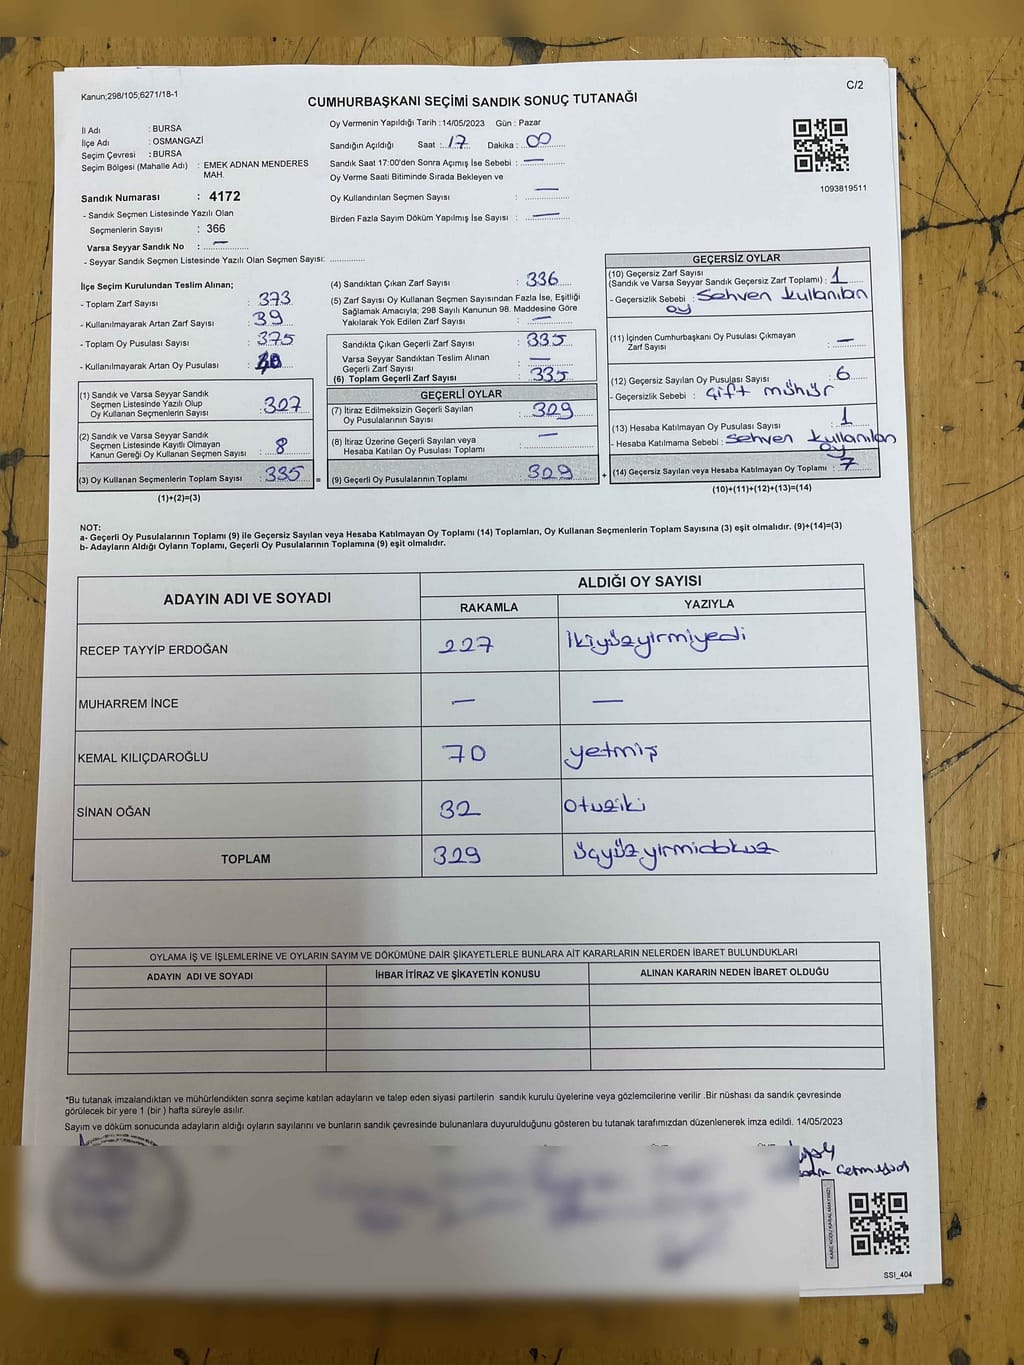 Kanun;298/105;6271/18-1
C/2
CUMHURBAŞKANI SEÇİMİ SANDIK SONUÇ TUTANAĞI
İl Adı : BURSA
İlçe Adı : OSMANGAZİ
Seçim Çevresi : BURSA
Seçim Bölgesi (Mahalle Adı) : EMEK ADNAN MENDERES MAH.
Sandık Numarası : 4172
- Sandık Seçmen Listesinde Yazılı Olan
Seçmenlerin Sayısı : 366
Varsa Seyyar Sandık No : —
- Seyyar Sandık Seçmen Listesinde Yazılı Olan Seçmen Sayısı: ..............
Oy Vermenin Yapıldığı Tarih :14/05/2023 Gün : Pazar
Sandığın Açıldığı Saat : 17 Dakika : 00
Sandık Saat 17:00'den Sonra Açımış İse Sebebi : —
Oy Verme Saati Bitiminde Sırada Bekleyen ve
Oy Kullandırılan Seçmen Sayısı : —
Birden Fazla Sayım Döküm Yapılmış İse Sayısı : —
1093819511
İlçe Seçim Kurulundan Teslim Alınan;
- Toplam Zarf Sayısı : 373
- Kullanılmayarak Artan Zarf Sayısı : 39
- Toplam Oy Pusulası Sayısı : 375
- Kullanılmayarak Artan Oy Pusulası : 40
(1) Sandık ve Varsa Seyyar Sandık
Seçmen Listesinde Yazılı Olup
Oy Kullanan Seçmenlerin Sayısı : 327
(2) Sandık ve Varsa Seyyar Sandık
Seçmen Listesinde Kayıtlı Olmayan
Kanun Gereği Oy Kullanan Seçmen Sayısı : 8
(3) Oy Kullanan Seçmenlerin Toplam Sayısı : 335 =
(1)+(2)=(3)
(4) Sandıktan Çıkan Zarf Sayısı : 336
(5) Zarf Sayısı Oy Kullanan Seçmen Sayısından Fazla İse, Eşitliği
Sağlamak Amacıyla; 298 Sayılı Kanunun 98. Maddesine Göre
Yakılarak Yok Edilen Zarf Sayısı : —
Sandıkta Çıkan Geçerli Zarf Sayısı : 335
Varsa Seyyar Sandıktan Teslim Alınan
Geçerli Zarf Sayısı : —
(6) Toplam Geçerli Zarf Sayısı : 335
GEÇERLİ OYLAR
(7) İtiraz Edilmeksizin Geçerli Sayılan
Oy Pusulalarının Sayısı : 329
(8) İtiraz Üzerine Geçerli Sayılan veya
Hesaba Katılan Oy Pusulası Toplamı : —
(9) Geçerli Oy Pusulalarının Toplamı : 329 +
GEÇERSİZ OYLAR
(10) Geçersiz Zarf Sayısı
(Sandık ve Varsa Seyyar Sandık Geçersiz Zarf Toplamı) : 1
- Geçersizlik Sebebi : Sehven kullanılan
oy
(11) İçinden Cumhurbaşkanı Oy Pusulası Çıkmayan
Zarf Sayısı : —
(12) Geçersiz Sayılan Oy Pusulası Sayısı : 6
- Geçersizlik Sebebi : Çift mühür
(13) Hesaba Katılmayan Oy Pusulası Sayısı : 1
- Hesaba Katılmama Sebebi : Sehven kullanılan
oy
(14) Geçersiz Sayılan veya Hesaba Katılmayan Oy Toplamı : 7
(10)+(11)+(12)+(13)=(14)
NOT:
a- Geçerli Oy Pusulalarının Toplamı (9) ile Geçersiz Sayılan veya Hesaba Katılmayan Oy Toplamı (14) Toplamları, Oy Kullanan Seçmenlerin Toplam Sayısına (3) eşit olmalıdır. (9)+(14)=(3)
b- Adayların Aldığı Oyların Toplamı, Geçerli Oy Pusulalarının Toplamına (9) eşit olmalıdır.
ADAYIN ADI VE SOYADI ALDIĞI OY SAYISI
RAKAMLA YAZIYLA
RECEP TAYYİP ERDOĞAN 227 İkiyüzyirmiyedi
MUHARREM İNCE — —
KEMAL KILIÇDAROĞLU 70 yetmiş
SİNAN OĞAN 32 otuziki
TOPLAM 329 üçyüzyirmidokuz
OYLAMA İŞ VE İŞLEMLERİNE VE OYLARIN SAYIM VE DÖKÜMÜNE DAİR ŞİKAYETLERLE BUNLARA AİT KARARLARIN NELERDEN İBARET BULUNDUKLARI
ADAYIN ADI VE SOYADI İHBAR İTİRAZ VE ŞİKAYETİN KONUSU ALINAN KARARIN NEDEN İBARET OLDUĞU
*Bu tutanak imzalandıktan ve mühürlendikten sonra seçime katılan adayların ve talep eden siyasi partilerin sandık kurulu üyelerine veya gözlemcilerine verilir .Bir nüshası da sandık çevresinde
görülecek bir yere 1 (bir ) hafta süreyle asılır.
Sayım ve döküm sonucunda adayların aldığı oyların sayılarını ve bunların sandık çevresinde bulunanlara duyurulduğunu gösteren bu tutanak tarafımızdan düzenlenerek imza edildi. 14/05/2023
KARE KODU KARALAMAYINIZ!
SSI_404